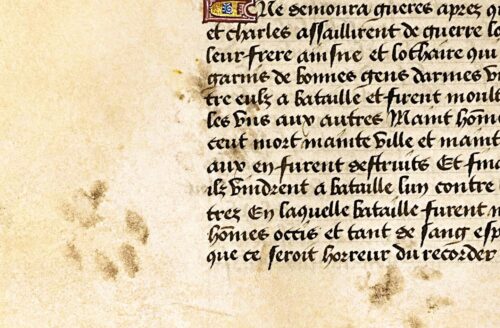 Ne demoura gueres aprez q
et charles assaillirent de guerre lo
leur frere aisne et lothaire qui
garnis de bonnes gens darmes vi
tre eulz a bataille et furent moult
les vns aux autres Maint hõme
ceut mort mainte ville et maint
aux en furent destruits Et fina
ilz vindrent a bataille lun contre
trez En laquelle bataille furent
hõmes occis et tant de sang esp
que ce seroit horreur du recorder